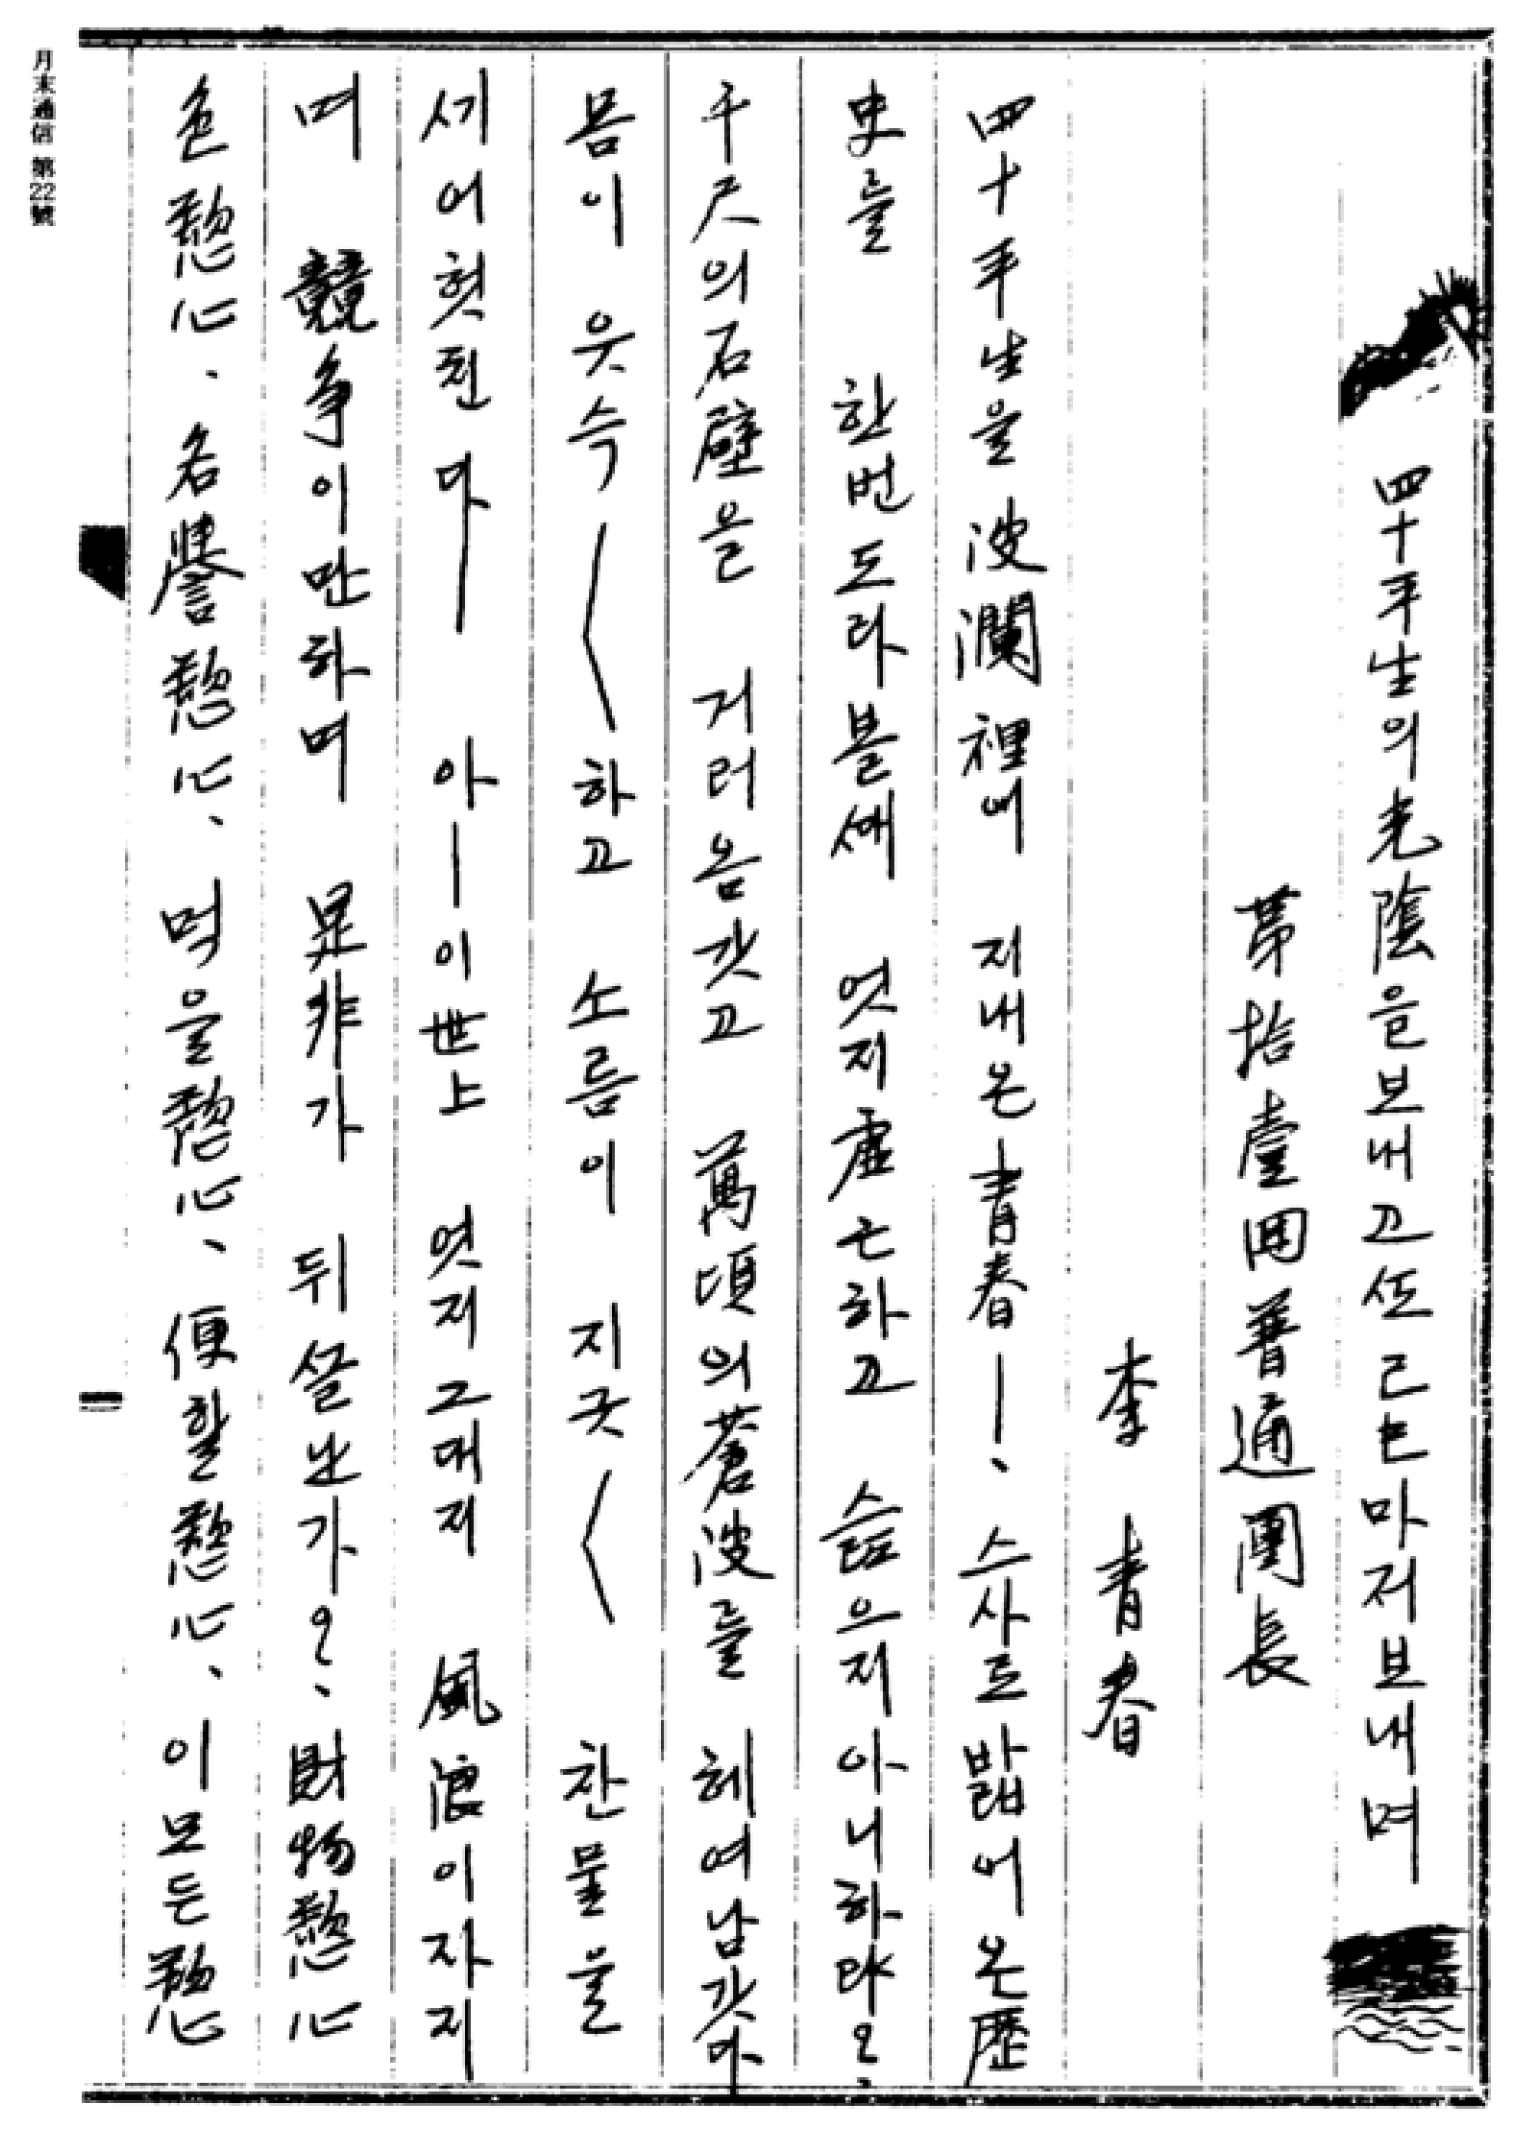 四十平生의光陰을보내고또르는마저보내며
第拾壹回普通團長
李青春
四十平生을波瀾裡에 지내온青春ー、스사로밟어온歷
史를 한번도라볼새 엇지虛亡하고 슲으지아니하랴?
千尺의石壁을 거러옴갓고 萬頃의蒼波를 헤여남갓아
몸이 읏슥〱하고 소름이 지긋〱 찬물을
세어헛된다ー 아ー이世上 엇지그대지 風浪이자지
며 競争이만하며 是非가 뒤설난가?、財物慾心
色慾心、名譽慾心、먹을慾心、便할慾心、이모든慾
月末通信 第22號